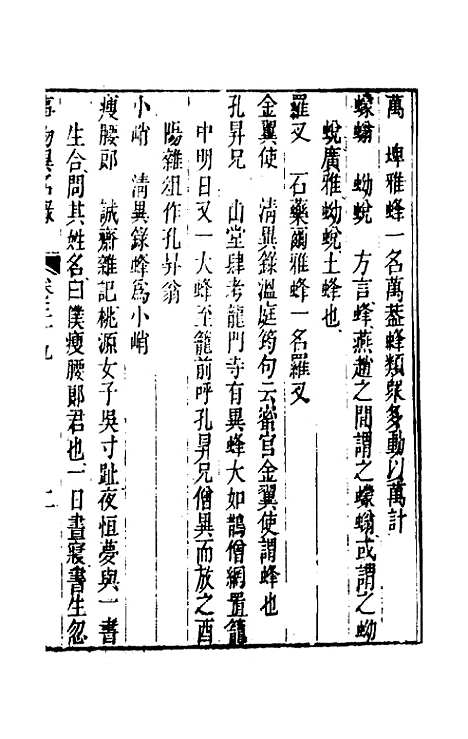 萬　埤雅蜂一名萬葢蜂類眾多動以萬計
蠓螉　蚴蛻　方言蜂燕趙之間謂之蠓螉或謂之蚴
蛻廣雅蚴蛻土蜂也
羅叉　石藥爾雅蜂一名羅叉
金翼使　清異錄溫庭筠句云蜜官金翼使謂蜂也
孔昇兄　山堂肆考龍門寺有異蜂大如鵲僧網置籠
中明日又一大蜂至籠前呼孔昇兄僧異而放之酉
陽雜俎作孔昇翁
小峭　清異錄蜂爲小峭
瘦腰郎　誠齋雜記桃源女子吳寸趾夜恒夢與一書
生合問其姓名曰僕瘦腰郎君也一日晝寢書生忽
事物異名錄　卷三十九　二